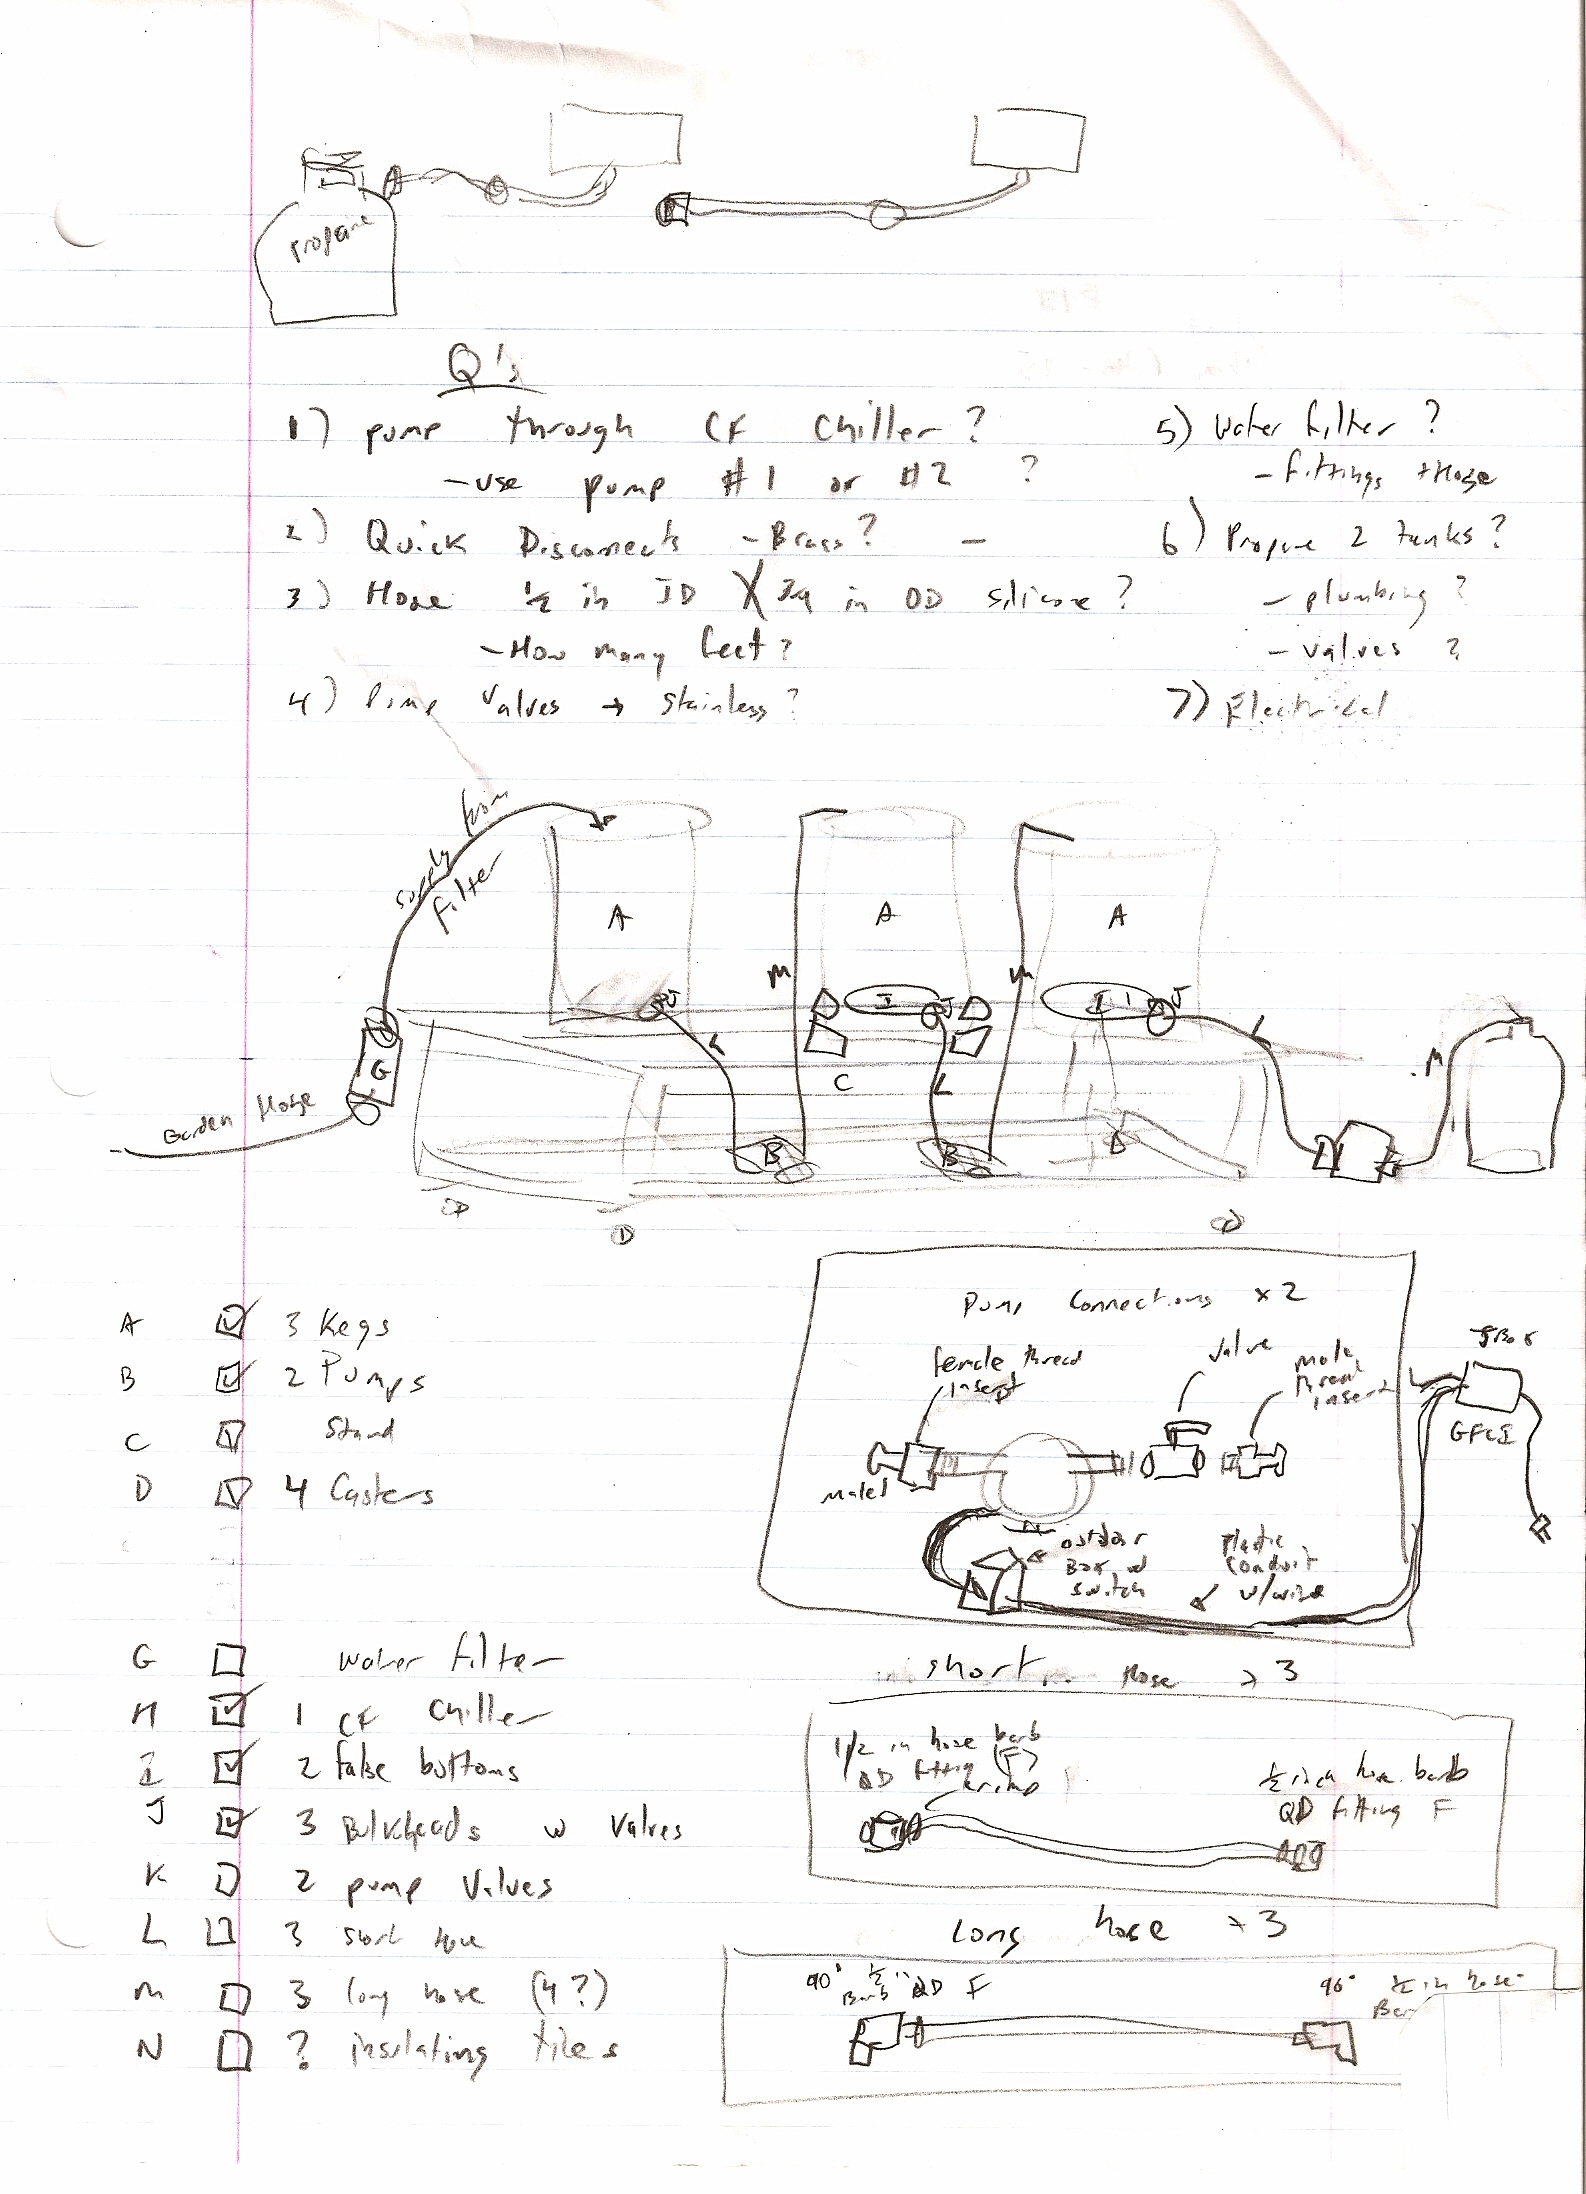 propane
Q's
1) pump through CF Chiller?
-use pump #1 or #2 ?
2) Quick Disconnects - Brass? -
3) Hose 1/2 in ID X 3/4 in OD silicone?
- How many feet?
4) Pump Valves → stainless?
5) Water filter ?
- fittings + Hose
6) Propane 2 tanks?
- plumbing ?
- valves ?
7) Electrical
supply from
filter
A
A
A
M
M
I
J
J
I
J
L
G
C
L
M
Garden Hose
B
B
D
D
D
D
A 3 Kegs
B 2 Pumps
C Stand
D 4 Casters
G water filter
H 1 CF Chiller
I 2 false bottoms
J 3 Bulkheads w Valves
K 2 pump Valves
L 3 short hose
M 3 long hose (4?)
N ? insulating tiles
Pump Connections x2
female thread
insert
Valve
male
thread
insert
J Box
GFCI
male
outdoor
Box w
switch
plastic
conduit
w/wire
short Hose x 3
1/2 in hose barb
QD fitting (F)
crimp
1/2 inch hose barb
QD fitting F
Long hose x 3
90° 1/2"
Barb QD F
90° 1/2 in hose
Bar